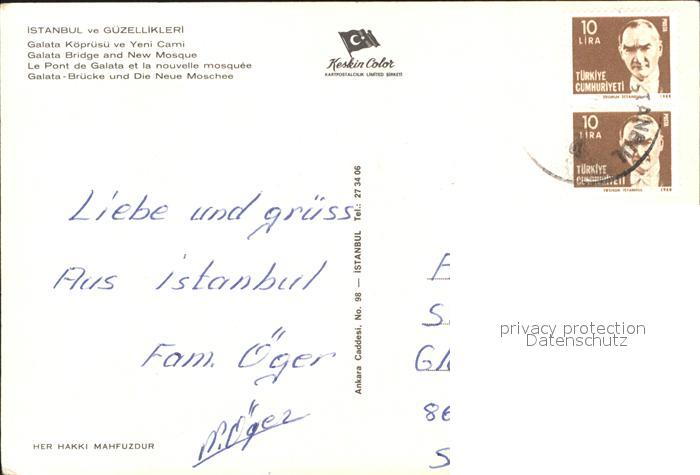 İSTANBUL ve GÜZELLİKLERİ
Galata Köprüsü ve Yeni Cami
Galata Bridge and New Mosque
Le Pont de Galata et la nouvelle mosquée
Galata-Brücke und Die Neue Moschee
Keskin Color
KARTPOSTALCILIK LIMITED ŞİRKETİ
10
LİRA
POSTA
TÜRKİYE
CUMHURİYETİ
10
LİRA
POSTA
TÜRKİYE
CUMHURİYETİ
İSTANBUL
Liebe und grüss
Aus istanbul
Fam. Öger
Öger
Ankara Caddesi, No. 98 — İSTANBUL Tel.: 27 34 06
F
S
Gl
86
S
privacy protection
Datenschutz
HER HAKKI MAHFUZDUR